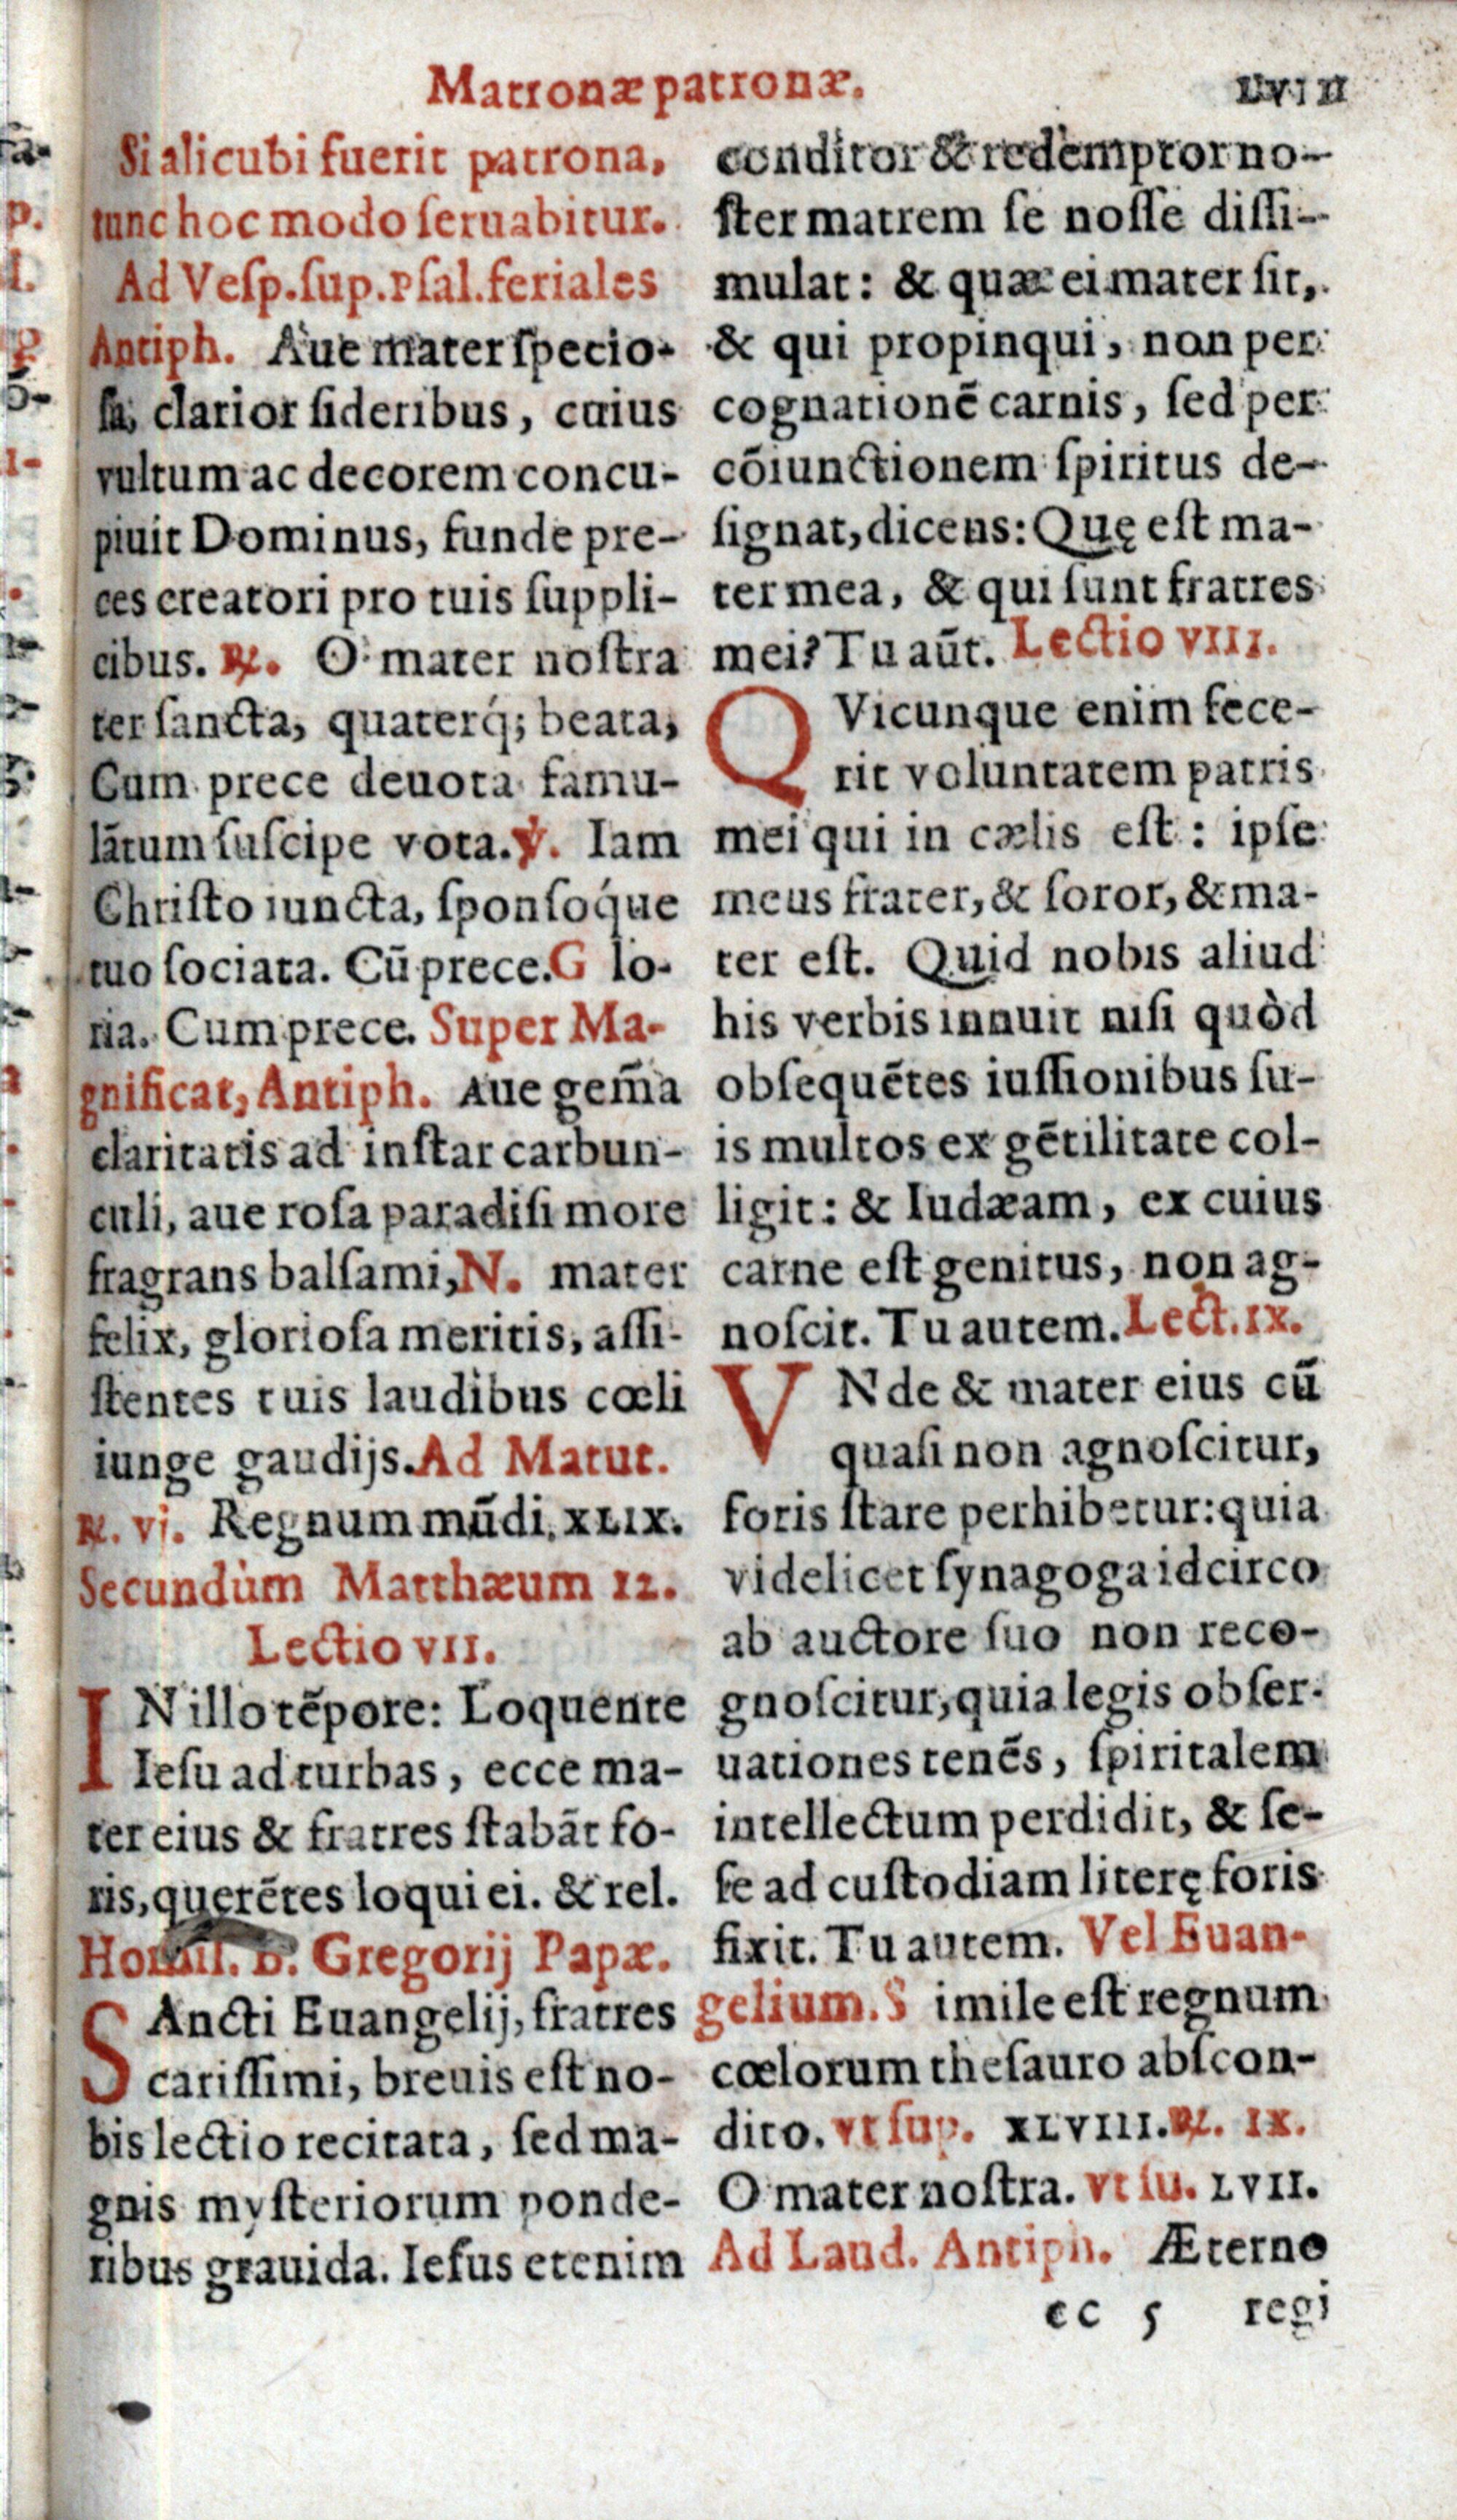 Matronæ patronæ.
LVIII
Si alicubi fuerit patrona,
tunc hoc modo ſeruabitur.
Ad Veſp. ſup. Pſal. feriales
Antiph. Aue mater ſpecio-
ſa, clarior ſideribus, cuius
vultum ac decorem concu-
piuit Dominus, funde pre-
ces creatori pro tuis ſuppli-
cibus. ℟. O mater noſtra
ter ſancta, quaterq́; beata,
Cum prece deuota famu-
lātum ſuſcipe vota. ℣. Iam
Chriſto iuncta, ſponſoq́ue
tuo ſociata. Cū prece. G lo-
ria. Cum prece. Super Ma-
gnificat, Antiph. Aue gem̄a
claritatis ad inſtar carbun-
culi, aue roſa paradiſi more
fragrans balſami, N. mater
felix, glorioſa meritis, aſſi-
ſtentes tuis laudibus cœli
iunge gaudijs. Ad Matut.
℟. vj. Regnum mūdi. XLIX.
Secundùm Matthæum 12.
Lectio VII.
IN illo tēpore: Loquente
Ieſu ad turbas, ecce ma-
ter eius & fratres ſtabāt fo-
ris, querētes loqui ei. & rel.
Homil. B. Gregorij Papæ.
SAncti Euangelij, fratres
cariſſimi, breuis eſt no-
bis lectio recitata, ſed ma-
gnis myſteriorum ponde-
ribus grauida. Ieſus etenim
conditor & redemptor no-
ſter matrem ſe noſſe diſſi-
mulat: & quæ ei mater ſit,
& qui propinqui, non per
cognationē carnis, ſed per
cōiunctionem ſpiritus de-
ſignat, dicens: Quę eſt ma-
ter mea, & qui ſunt fratres
mei? Tu aūt. Lectio VIII.
QVicunque enim fece-
rit voluntatem patris
mei qui in cælis eſt: ipſe
meus frater, & ſoror, & ma-
ter eſt. Quid nobis aliud
his verbis innuit niſi quòd
obſequētes iuſſionibus ſu-
is multos ex gētilitate col-
ligit: & Iudæam, ex cuius
carne eſt genitus, non ag-
noſcit. Tu autem. Lect. IX.
VNde & mater eius cū
quaſi non agnoſcitur,
foris ſtare perhibetur: quia
videlicet ſynagoga idcirco
ab auctore ſuo non reco-
gnoſcitur, quia legis obſer-
uationes tenēs, ſpiritalem
intellectum perdidit, & ſe-
ſe ad cuſtodiam literę foris
fixit. Tu autem. Vel Euan-
gelium. S imile eſt regnum
cœlorum theſauro abſcon-
dito. vt ſup. XLVIII. ℟. IX.
O mater noſtra. vt ſu. LVII.
Ad Laud. Antiph. Æterno
cc 5 regi